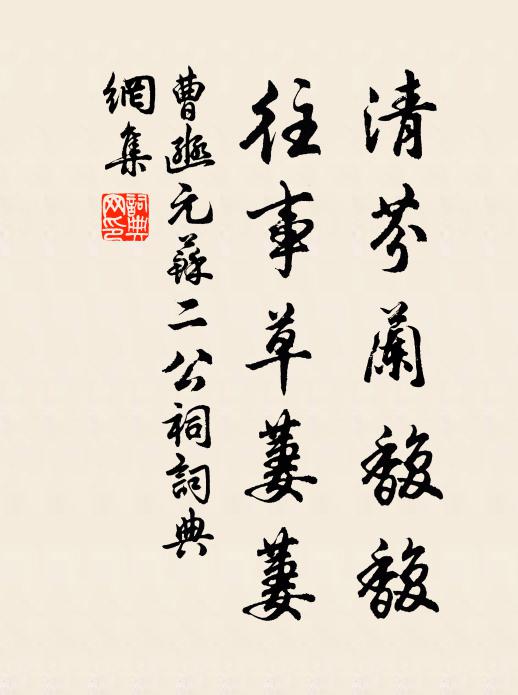 清芬蘭馥馥
往事草萋萋
曹元蘇二公祠詞典
網集
詞典
网印